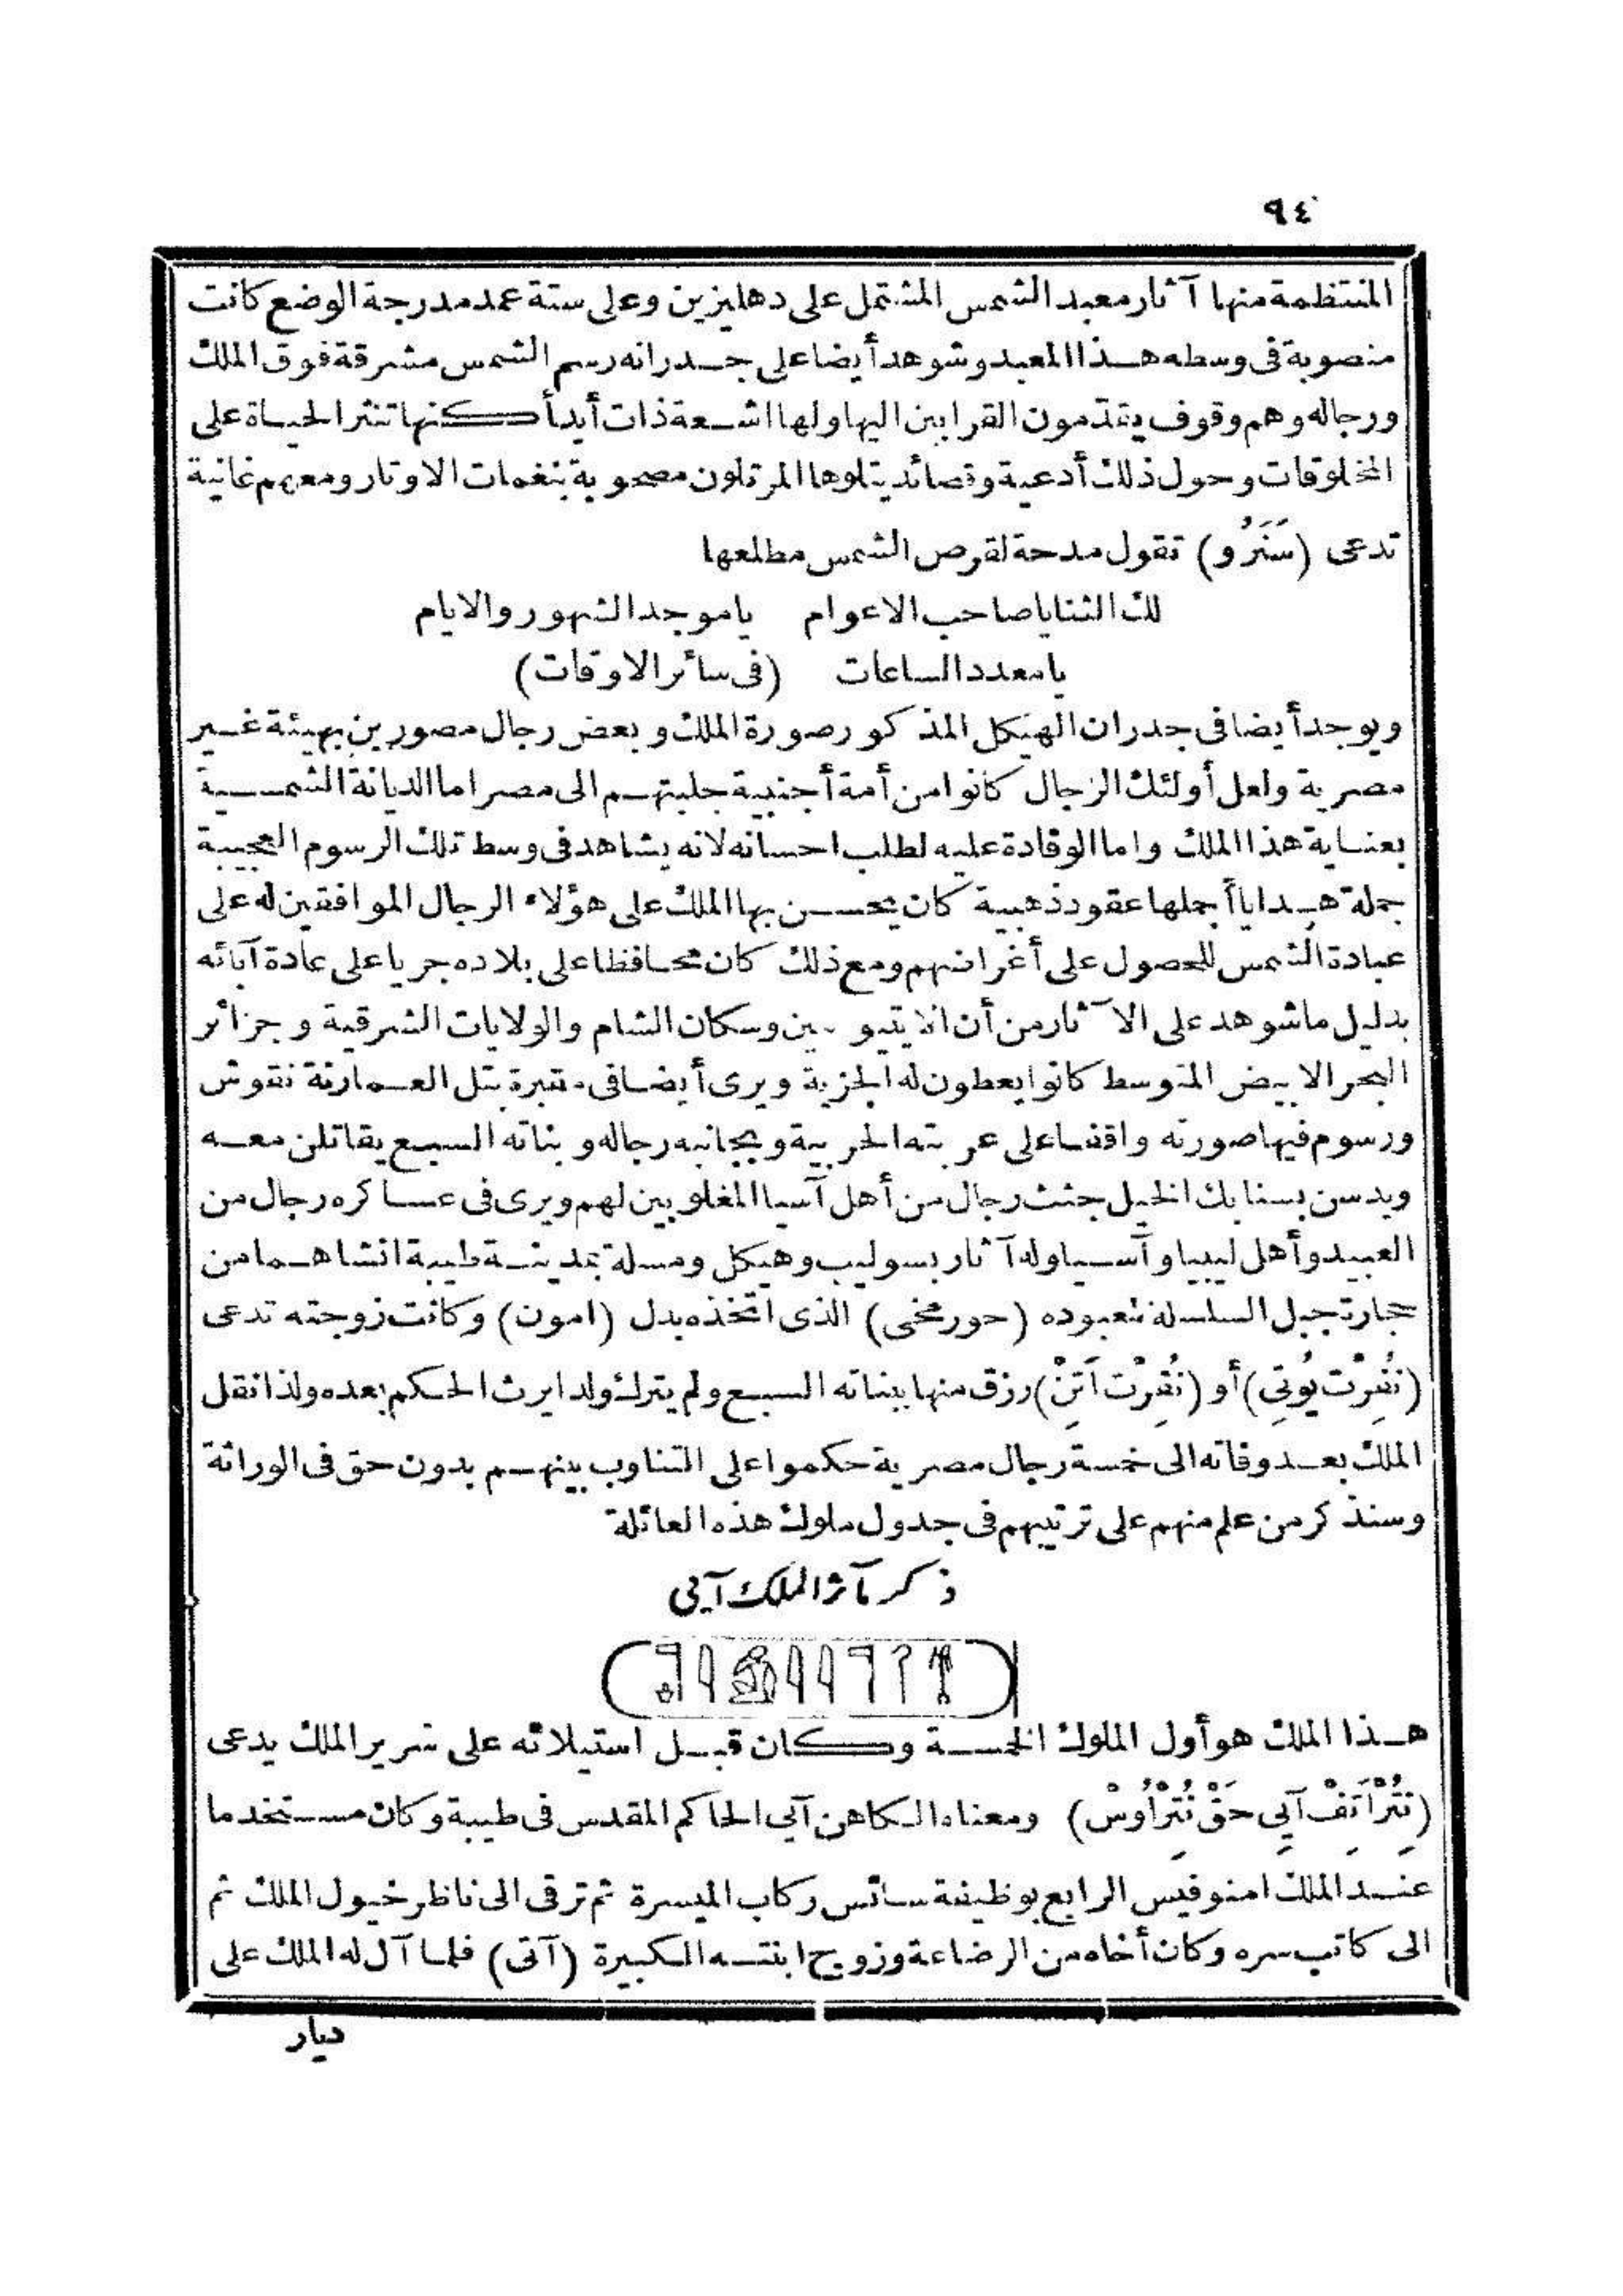 ٩٤
المنتظمة منها آثار معبد الشمس المشتمل على دهليزين وعلى ستة عمد مدرجة الوضع كانت
منصوبة فى وسطه هذا المعبد وشوهد أيضا على جدرانه رسم الشمس مشرقة فوق الملك
ورجاله وهم وقوف يقدّمون القرابين اليها ولها اشعة ذات أيد أكنها تنثر الحياة على
المخلوقات وحول ذلك أدعية وقصائد يتلوها المرتلون مصحوبة بنغمات الاوتار ومعهم غانية
تدعى (سَنَرُو) تقول مدحة لقرص الشمس مطلعها
لك الثنا ياصاحب الاعوام ياموجد الشهور والايام
يامعدد الساعات (فى سائر الاوقات)
ويوجد أيضا فى جدران الهيكل المذكور صورة الملك وبعض رجال مصورين بهيئة غير
مصرية ولعل أولئك الرجال كانوا من أمة أجنبية جلبتهم الى مصر اما الديانة الشمسية
بعناية هذا الملك واما الوفادة عليه لطلب احسانه لانه يشاهد فى وسط تلك الرسوم العجيبة
جملة هدايا أجملها عقود ذهبية كان يحسن بها الملك على هؤلاء الرجال الموافقين له على
عبادة الشمس للحصول على أغراضهم ومع ذلك كان محافظا على بلاده جريا على عادة آبائه
بدليل ماشوهد على الآثار من أن الايتيوبيين وسكان الشام والولايات الشرقية وجزائر
البحر الابيض المتوسط كانوا يعطون له الجزية ويرى أيضا فى مقبرة بتل العمارنة نقوش
ورسوم فيها صورته واقفا على عربته الحربية وبجانبه رجاله وبناته السبع يقاتلن معه
ويدسن بسنابك الخيل جثث رجال من أهل آسيا المغلوبين لهم ويرى فى عساكره رجال من
العبيد وأهل ليبيا وآسيا وله آثار بسوليب وهيكل ومسلة بمدينة طيبة انشاهما من
حجارة جبل السلسلة لمعبوده (حورمخى) الذى اتخذه بدل (امون) وكانت زوجته تدعى
(نُفِرْت يُوتِى) أو (نُفِرْت اَتِنْ) رزق منها ببناته السبع ولم يترك ولدا يرث الحكم بعده ولذا نقل
الملك بعد وفاته الى خمسة رجال مصرية حكموا على التناوب بينهم بدون حق فى الوراثة
وسنذكر من علم منهم على ترتيبهم فى جدول ملوك هذه العائلة
ذكر مآثر الملك آيى
هذا الملك هو أول الملوك الخمسة وكان قبل استيلائه على سرير الملك يدعى
(نِتُرْاَتِفْ آيِى حَقْ نُتِرْاُوسْ) ومعناه الكاهن آيى الحاكم المقدس فى طيبة وكان مستخدما
عند الملك امنوفيس الرابع بوظيفة سائس ركاب الميسرة ثم ترقى الى ناظر خيول الملك ثم
الى كاتب سره وكان أخاه من الرضاعة وزوج ابنته الكبيرة (آتى) فلما آل له الملك على
ديار